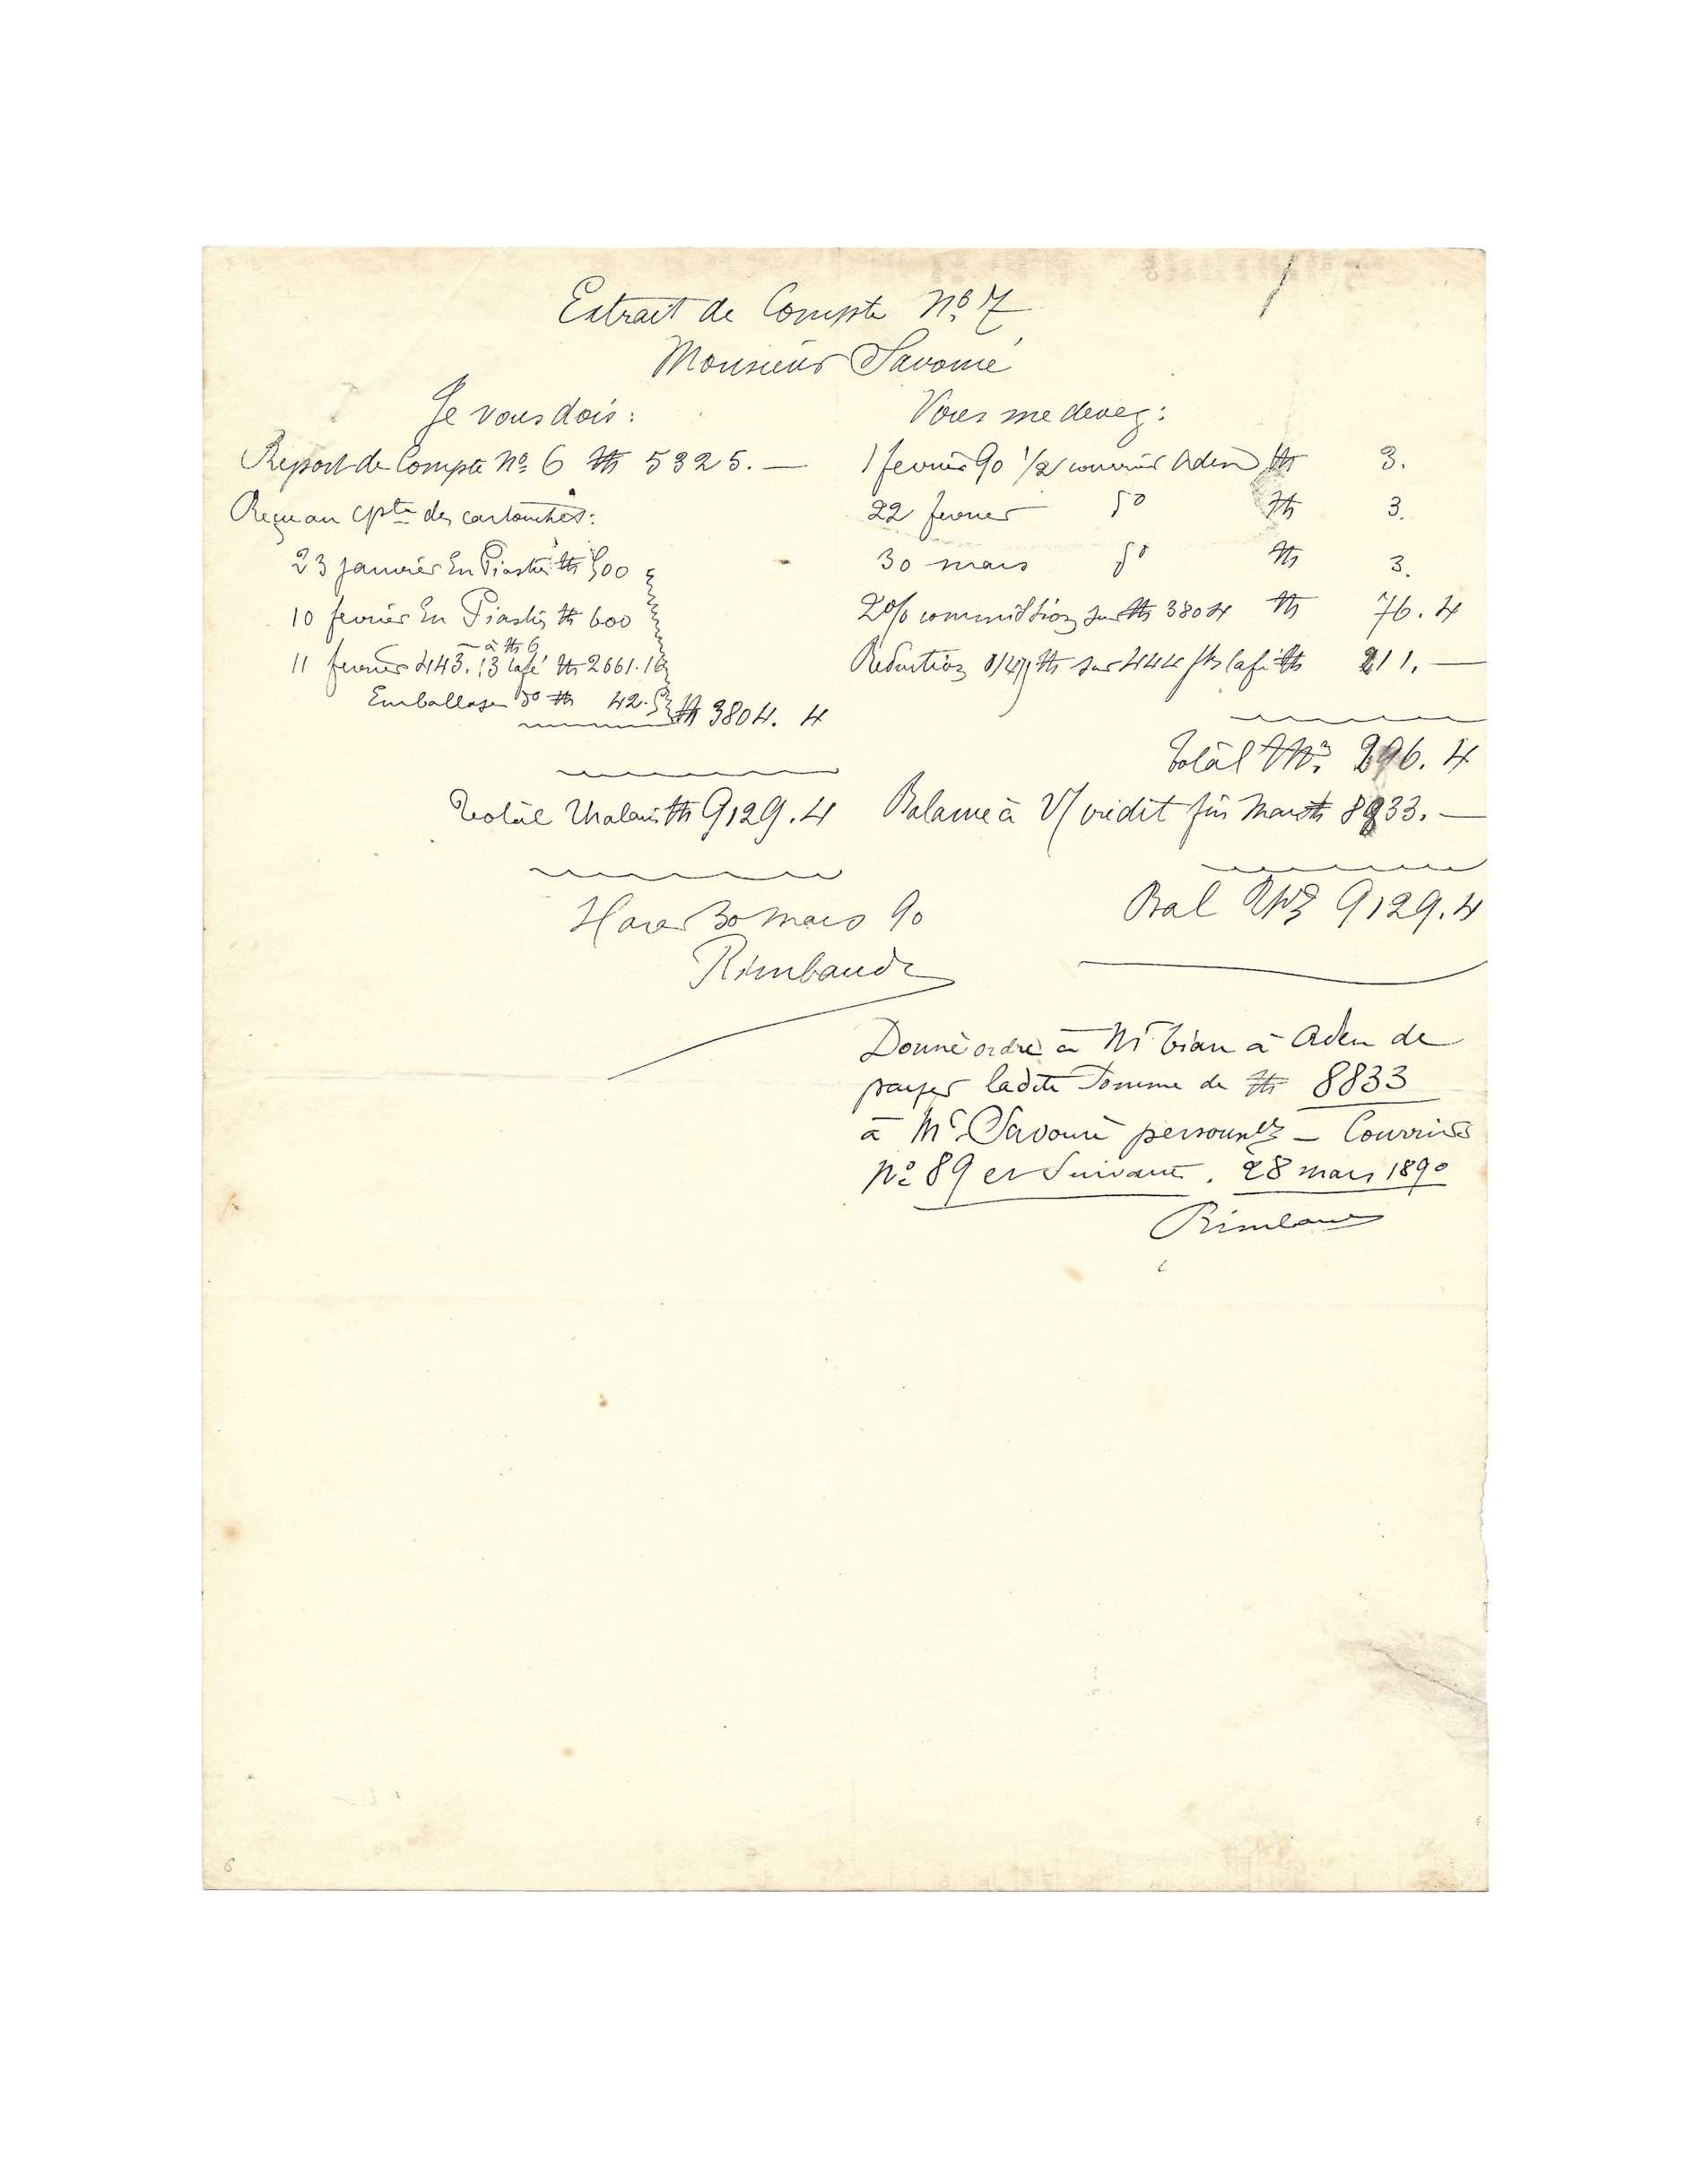 Extrait de Compte No. 7
Monsieur Savouré
Je vous dois :
Report de Compte No. 6 Th 5325. —
Reçu au cpte des cartouches :
23 janvier En Piastres Th 500
10 fevrier En Piastres Th 600
— à Th 6
11 fevrier 443. 13 café Th 2661. 16
Emballage do Th 42. 5 Th 3804. 4
Total Thalaris Th 9129. 4
Harar 30 mars 90
Rimbaud
Vous me devez :
1 fevrier 90 1/2 courrier Aden Th 3.
22 fevrier do Th 3.
30 mars do Th 3.
2% commission sur Th 3804 Th 76. 4
Réduction Th sur 444 café Th 211. —
Total Th 296. 4
Balance à V/ crédit fin Mars Th 8833. —
Bal 9129. 4
Donné ordre à Mr Tian à Aden de
payer ladite somme de Th 8833
à Mr. Savouré — Courriers
No. 89 et Suivant. 28 mars 1890
Rimbaud
6